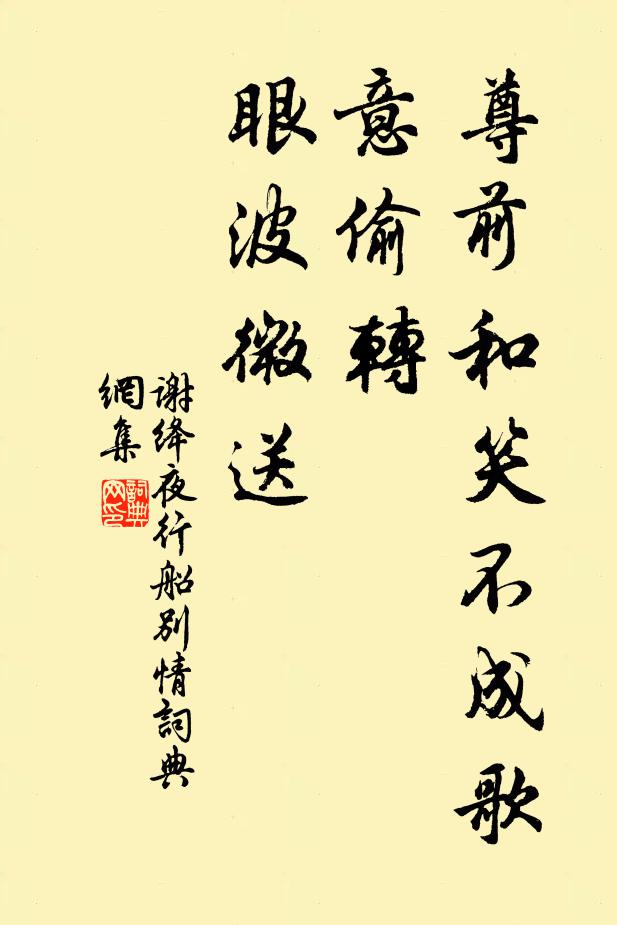 尊前和笑不成歌
意偷轉
眼波微送
谢绛夜行船别情詞典
網集
詞典
网印